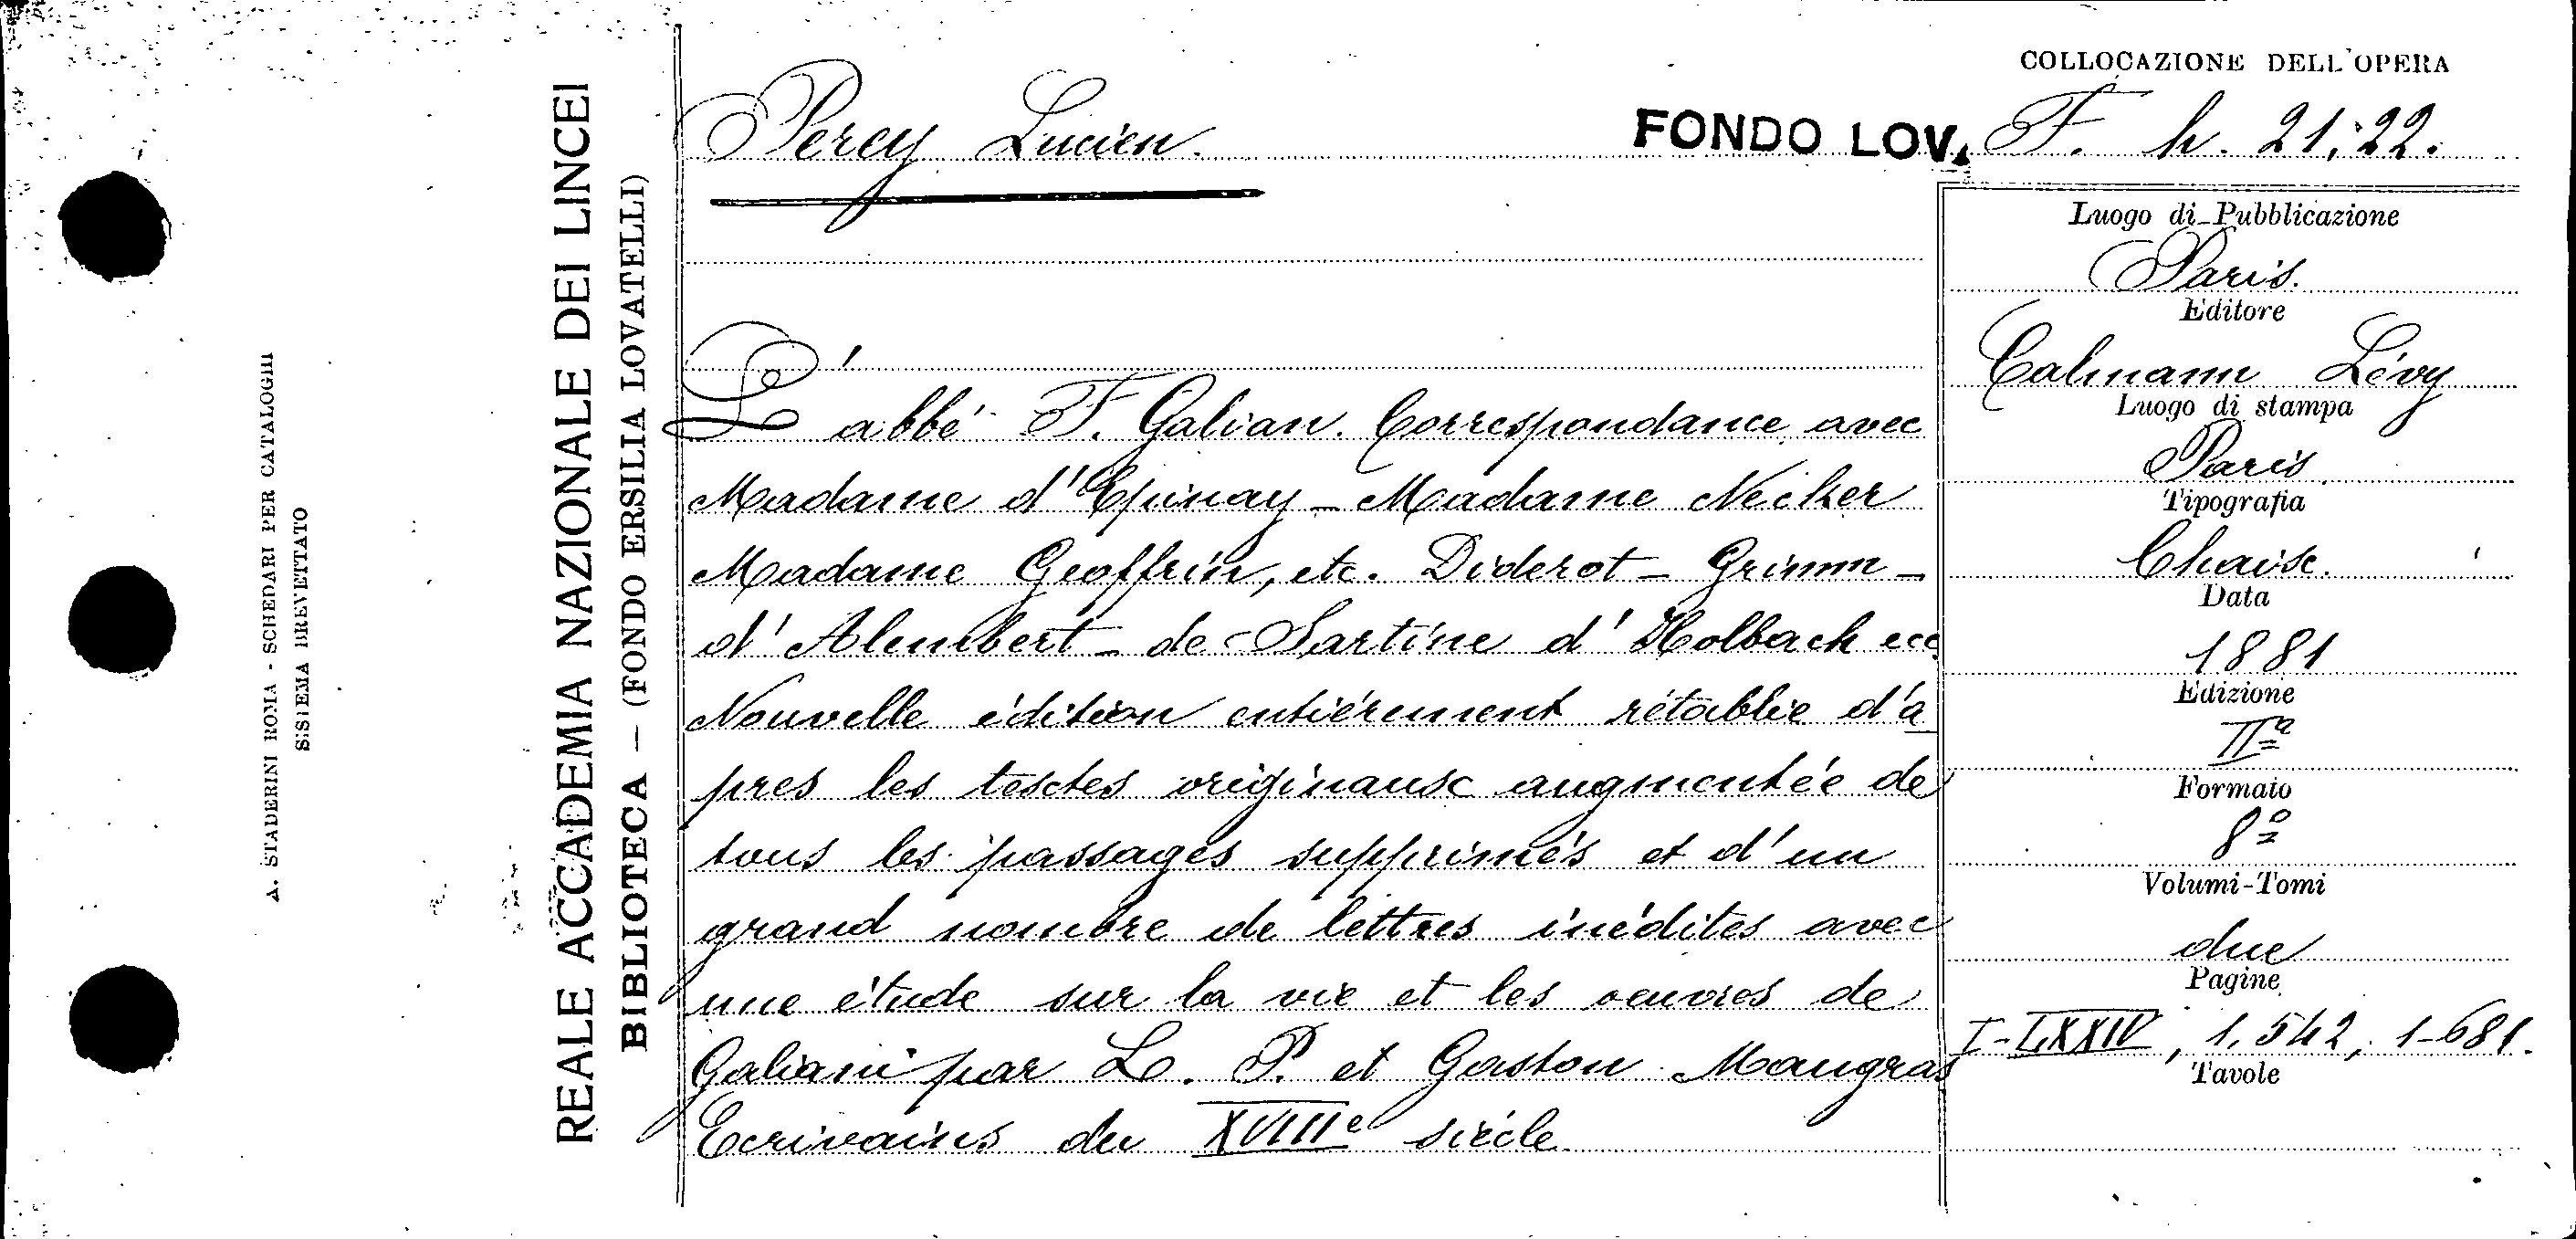 A. STADERINI ROMA - SCHEDARI PER CATALOGHI
SISTEMA BREVETTATO
REALE ACCADEMIA NAZIONALE DEI LINCEI
BIBLIOTECA — (FONDO ERSILIA LOVATELLI)
Perey Lucien.
L'abbé F. Galian. Correspondance avec
Madame d'Epinay - Madame Necker
Madame Geoffrin, etc. Diderot - Grimm -
d'Alembert - de Sartine d'Holbach ecc
Nouvelle édition entiérement rétablie d'a
pres les textes originaux augmentée de
tous les passages supprimés et d'un
grand nombre de lettres inédites avec
une étude sur la vie et les oeuvres de
Galiani par L. P. et Gaston Maugras
Ecrivains du XVIIIe siécle
COLLOCAZIONE DELL'OPERA
FONDO LOV. F. h. 21;22.
Luogo di Pubblicazione
Paris.
Editore
Calmann Lévy
Luogo di stampa
Paris
Tipografia
Chaise.
Data
1881
Edizione
IIa
Formato
8º
Volumi-Tomi
due
Pagine
I-LXXIV, 1.542, 1-681.
Tavole